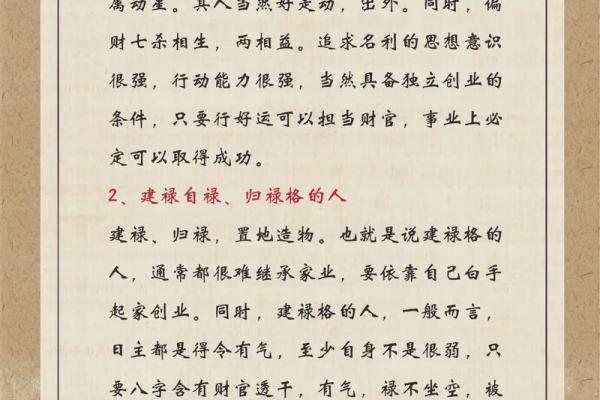 属动星。其人当然好走动，出外。同时，偏
财七杀相生，两相益。追求名利的思想意识
很强，行动能力很强，当然具备独立创业的
条件，只要行好运可以担当财官，事业上必
定可以取得成功。
2、建禄自禄、归禄格的人
建禄、归禄，置地造物。也就是说建禄格的
人，通常都很难继承家业，要依靠自己白手
起家创业。同时，建禄格的人，一般而言，
日主都是得令有气，至少自身不是很弱，只
要八字含有财官透干，有气，禄不坐空，被